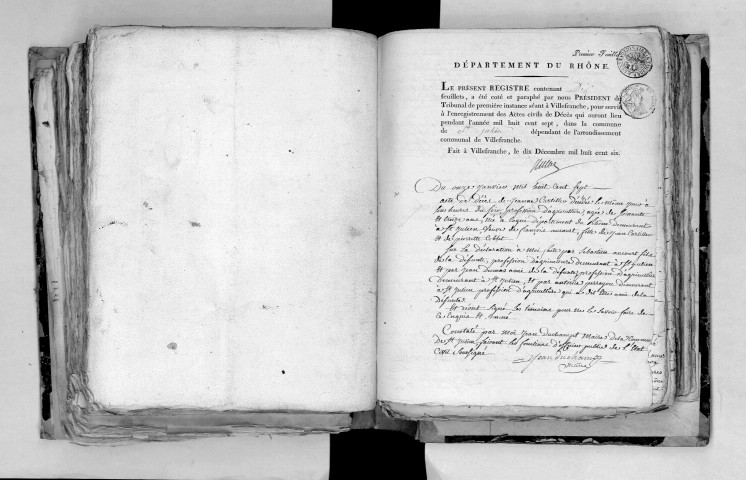 Premier Feuillet
DÉPARTEMENT DU RHÔNE.
LE PRÉSENT REGISTRE contenant
feuillets, a été coté et paraphé par nous PRÉSIDENT du
Tribunal de première instance séant à Villefranche, pour servir
à l'enregistrement des Actes civils de Décès qui auront lieu
pendant l'année mil huit cent sept, dans la commune
de St julien dépendant de l'arrondissement
communal de Villefranche.
Fait à Villefranche, le dix Décembre mil huit cent six.
Du onze janvier mil huit cent sept
acte de décès de jeanne décédée le même jour à
heures du soir, profession d'agriculture, agée de soixante
et onze ans, née à département du Rhône demeurant
à St julien, veuve de françois aucourt, fille de jean
et de pierrette
sur la déclaration à moi faite par Sébastien aucourt fils
de la défunte, profession d'agriculture demeurant à St julien
et par jean Dumas ami de la défunte, profession d'agriculture
demeurant à St julien, et par antoine demeurant
à St julien profession d'agriculture qui a dit être ami de la
défunte
et n'ont signé les témoins pour ne le savoir faire de
ce requis et
Constaté par moi jean Duchampt Maire de la Commune
de St julien faisant les fonctions d'officier public de l'État
Civil soussigné
jean duchampt
maire